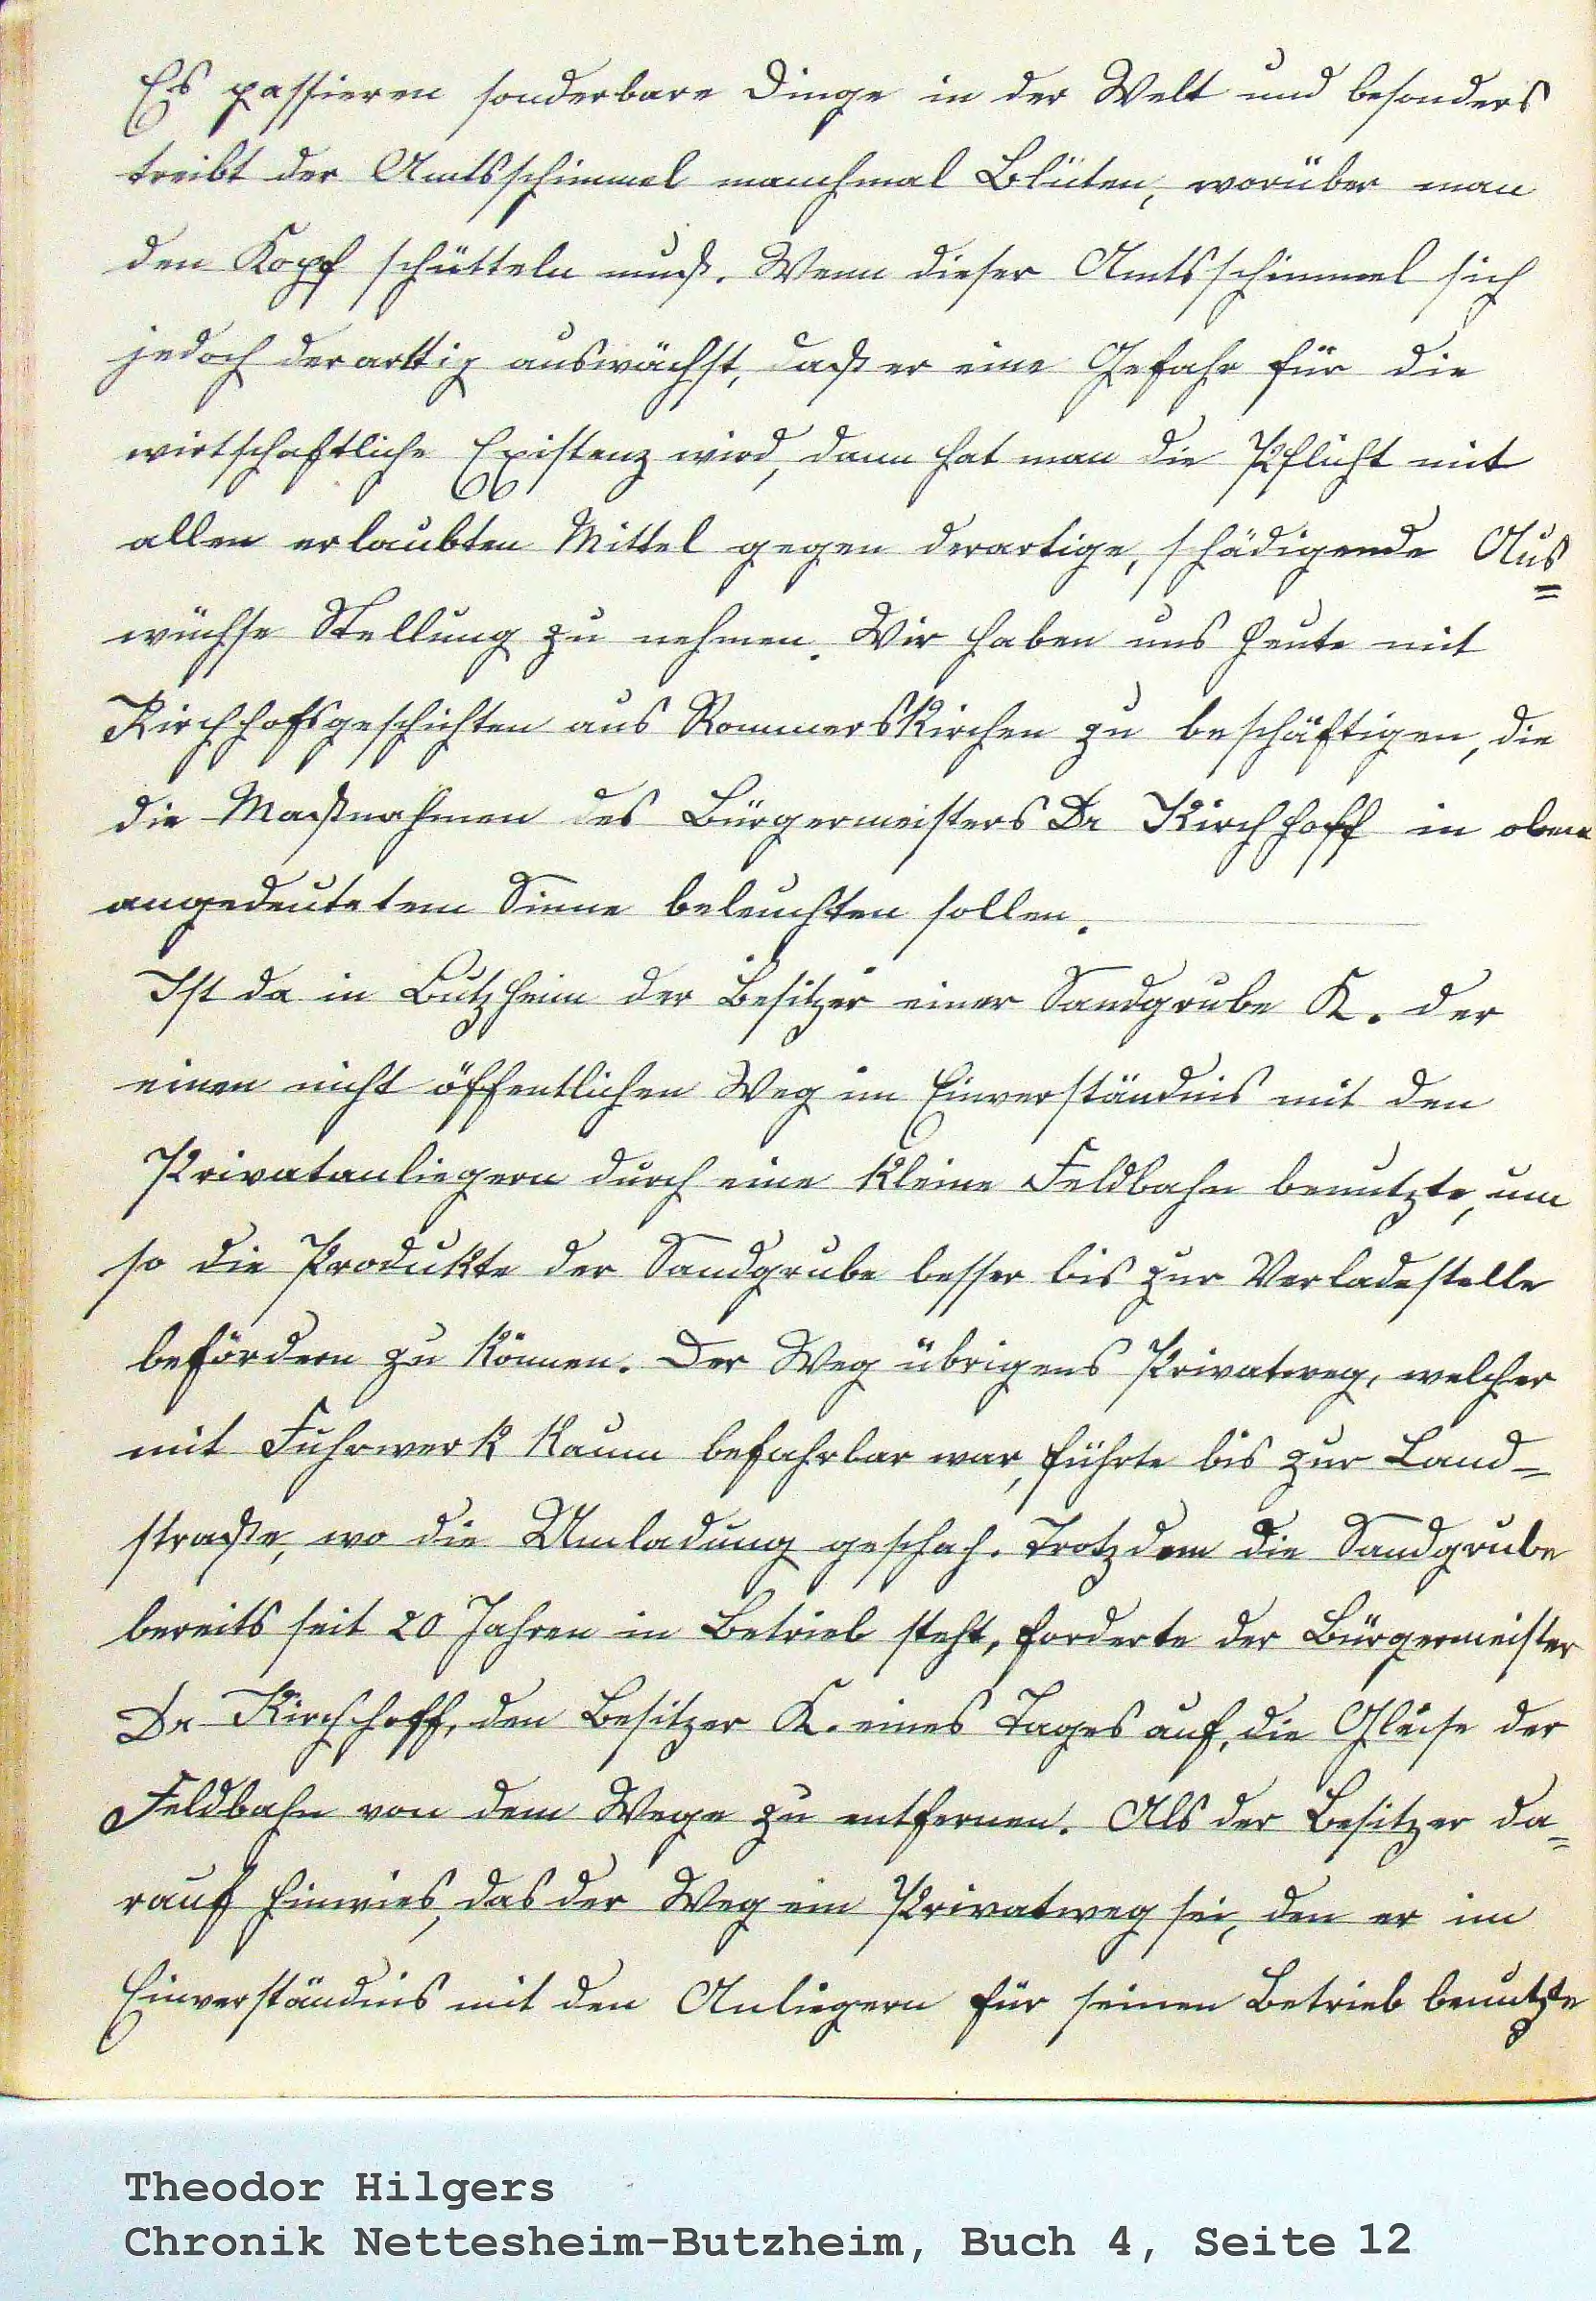 Es passieren sonderbare Dinge in der Welt und besonders
treibt der Amtsschimmel manchmal Blüten, worüber man
den Kopf schütteln muß. Wenn dieser Amtsschimmel sich
jedoch derarttig auswächst, daß er eine Gefahr für die
wirtschaftliche Existenz wird, dann hat man die Pflicht mit
allen erlaubten Mittel gegen derartige, schädigende Aus=
wüchse Stellung zu nehmen. Wir haben uns heute mit
Kirchhofsgeschichten aus Rommerskirchen zu beschäftigen, die
die Maßnahmen des Bürgermeisters Dr Kirchhoff in oben
angedeutetem Sinne beleuchten sollen.
Ist da in Butzheim der Besitzer einer Sandgrube K. der
einen nicht öffentlichen Weg im Einverständnis mit den
Privatanliegern durch eine kleine Feldbahn benutzte, um
so die Produkte der Sandgrube besser bis zur Verladestelle
befördern zu können. Der Weg übrigens Privatweg, welcher
mit Fuhrwerk kaum befahrbar war, führte bis zur Land=
straße, wo die Umladung geschah. Trotzdem die Sandgrube
bereits seit 20 Jahren in Betrieb steht, forderte der Bürgermeister
Dr Kirchhoff, den Besitzer K. eines Tages auf, die Gleise der
Feldbahn von dem Wege zu entfernen. Als der Besitzer da=
rauf hinwies, das der Weg ein Privatweg sei, den er im
Einverständnis mit den Anliegern für seinen Betrieb benutzte
Theodor Hilgers
Chronik Nettesheim-Butzheim, Buch 4, Seite 12